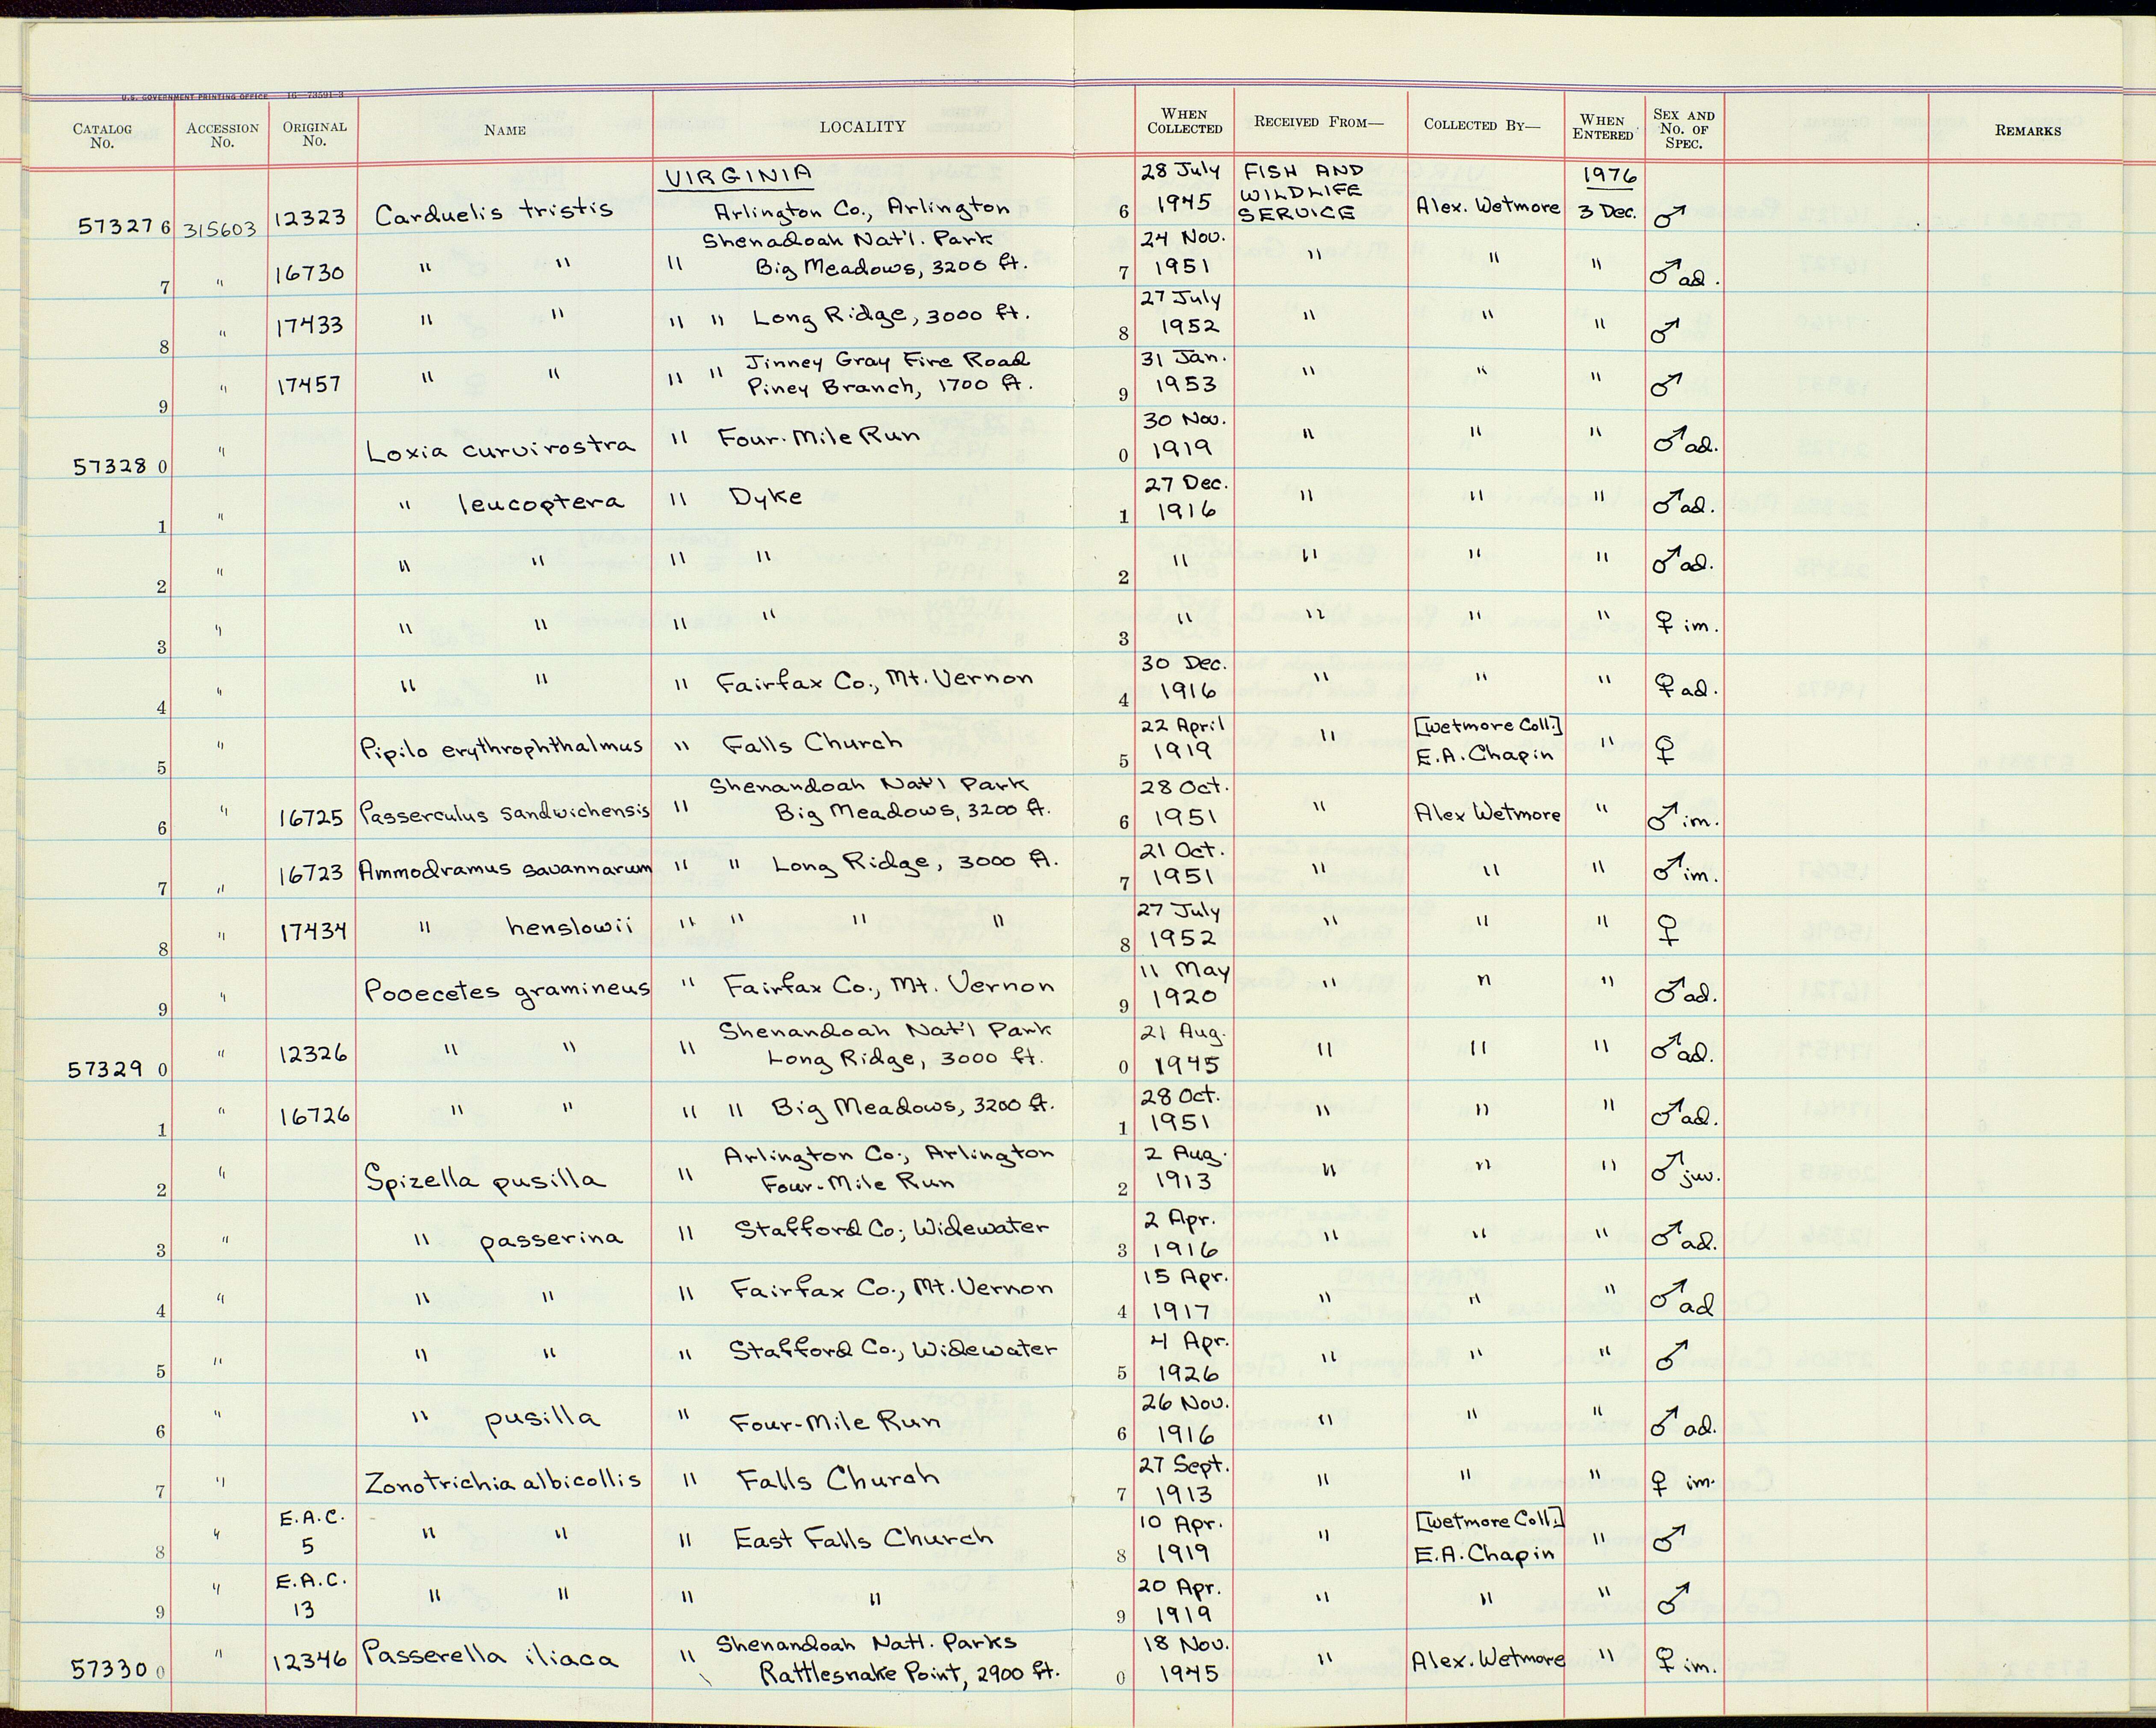 U.S. GOVERNMENT PRINTING OFFICE 16—73591-3
CATALOG No. ACCESSION No. ORIGINAL No. NAME LOCALITY WHEN COLLECTED RECEIVED FROM— COLLECTED BY— WHEN ENTERED SEX AND No. OF SPEC. REMARKS
VIRGINIA 28 July FISH AND WILDLIFE SERVICE 1976
573276 315603 12323 Carduelis tristis Arlington Co., Arlington 6 1945 Alex. Wetmore 3 Dec. ♂
Shenadoah Nat'l. Park 24 Nov.
7 " 16730 " " " Big Meadows, 3200 ft. 7 1951 " " " ♂ ad.
27 July
8 " 17433 " " " " Long Ridge, 3000 ft. 8 1952 " " " ♂
Jinney Gray Fire Road 31 Jan.
9 " 17457 " " " " Piney Branch, 1700 ft. 9 1953 " " " ♂
30 Nov.
573280 " Loxia curvirostra " Four-Mile Run 0 1919 " " " ♂ ad.
27 Dec.
1 " " leucoptera " Dyke 1 1916 " " " ♂ ad.
2 " " " " " 2 " " " " ♂ ad.
3 " " " " " 3 " " " " ♀ im.
30 Dec.
4 " " " " Fairfax Co., Mt. Vernon 4 1916 " " " ♀ ad.
22 April [Wetmore Coll.]
5 " Pipilo erythrophthalmus " Falls Church 5 1919 " E.A. Chapin " ♀
Shenandoah Nat'l Park 28 Oct.
6 " 16725 Passerculus sandwichensis " Big Meadows, 3200 ft. 6 1951 " Alex Wetmore " ♂ im.
21 Oct.
7 " 16723 Ammodramus savannarum " " Long Ridge, 3000 ft. 7 1951 " " " ♂ im.
27 July
8 " 17434 " henslowii " " " " 8 1952 " " " ♀
11 May
9 " Pooecetes gramineus " Fairfax Co., Mt. Vernon 9 1920 " " " ♂ ad.
Shenandoah Nat'l Park 21 Aug.
573290 " 12326 " " " Long Ridge, 3000 ft. 0 1945 " " " ♂ ad.
28 Oct.
1 " 16726 " " " " Big Meadows, 3200 ft. 1 1951 " " " ♂ ad.
Arlington Co., Arlington 2 Aug.
2 " Spizella pusilla " Four-Mile Run 2 1913 " " " ♂ juv.
2 Apr.
3 " " passerina " Stafford Co; Widewater 3 1916 " " " ♂ ad.
15 Apr.
4 " " " " Fairfax Co., Mt. Vernon 4 1917 " " " ♂ ad
4 Apr.
5 " " " " Stafford Co., Widewater 5 1926 " " " ♂
26 Nov.
6 " " pusilla " Four-Mile Run 6 1916 " " " ♂ ad.
27 Sept.
7 " Zonotrichia albicollis " Falls Church 7 1913 " " " ♀ im.
E.A.C. 10 Apr. [Wetmore Coll.]
8 " 5 " " " East Falls Church 8 1919 " E.A. Chapin " ♂
E.A.C. 20 Apr.
9 " 13 " " " " 9 1919 " " " ♂
Shenandoah Natl. Parks 18 Nov.
573300 " 12346 Passerella iliaca " Rattlesnake Point, 2900 ft. 0 1945 " Alex. Wetmore " ♀ im.